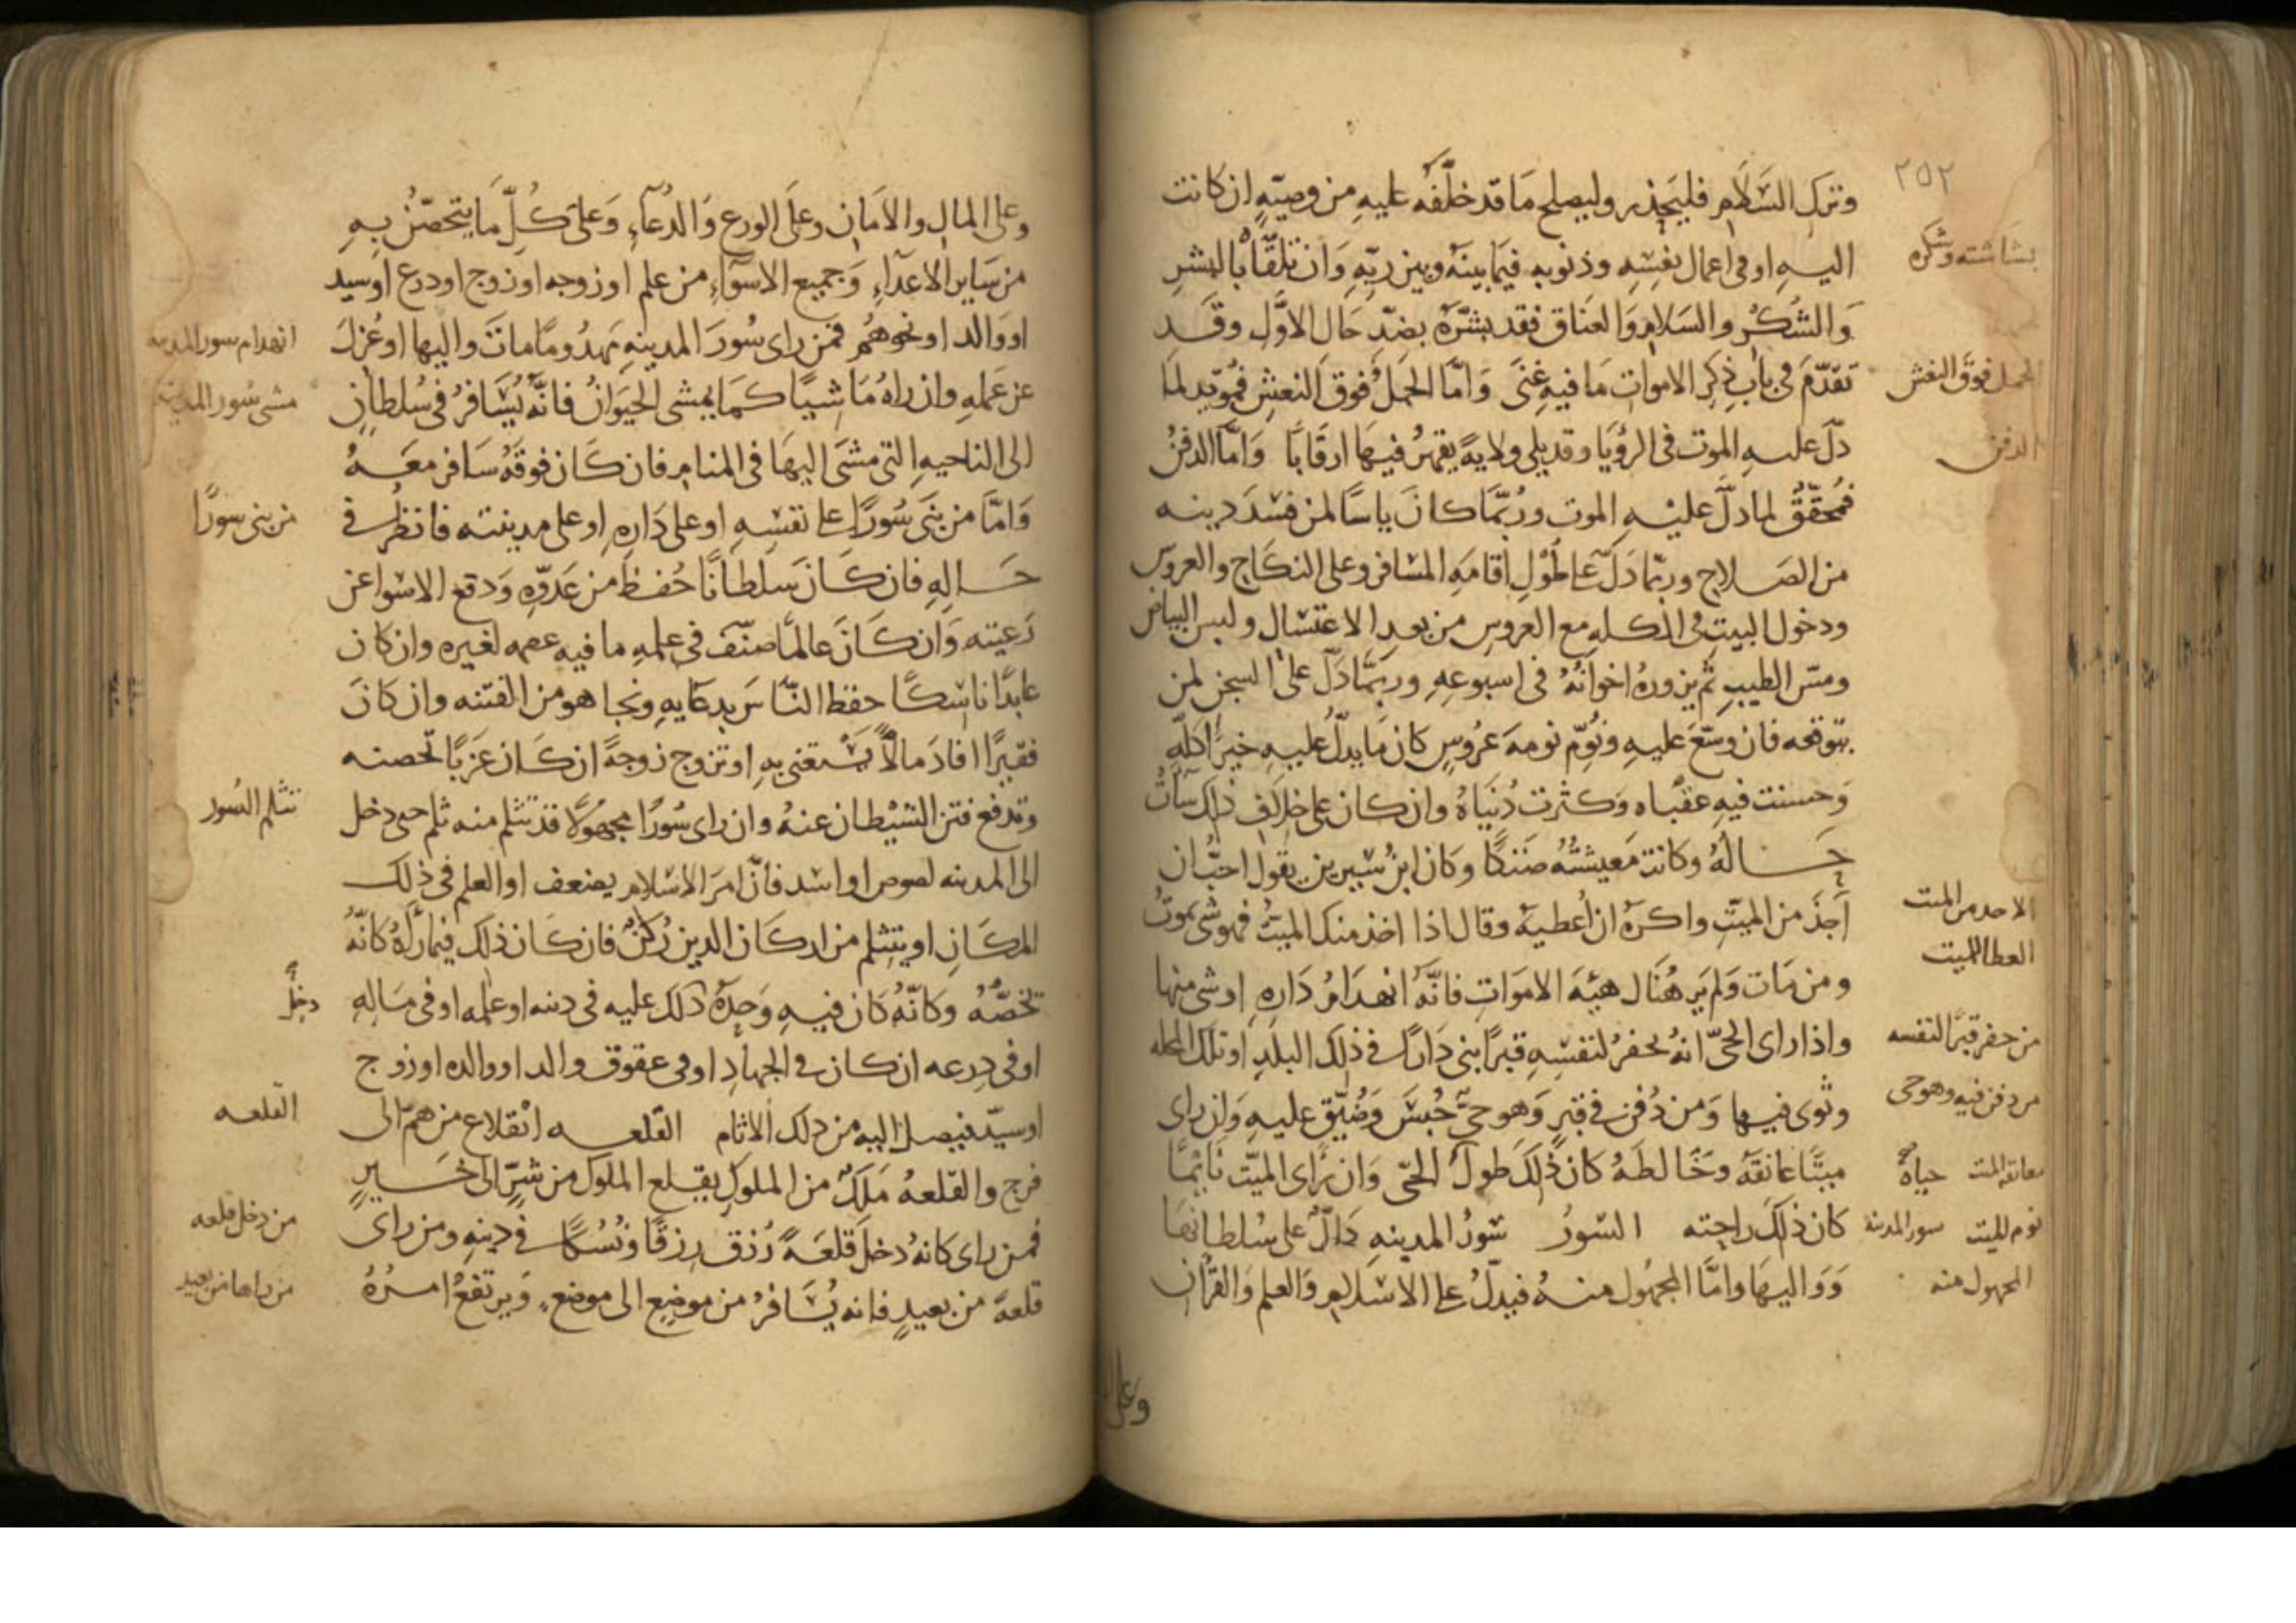 ٢٥٢
وترك السَّلَام فليَحذر وليصلح مَا قد خلّفَه عليهِ من وصيّهٍ ان كانت
اليهِ او في اعمال نفسِهِ وذنوبه فيمَا بينَهُ وبين ربّهِ وَان تلقّاه بالبِشرِ
بشاشته وشكره
وَالشُكرِ والسَلامِ وَالعنَاق فقد بشّرَهُ بضدّ حَال الاوَّل وقَد
تقدّمَ في بابِ ذِكرِ الاموات مَا فيهِ غِنَى وَامَّا الحَملُ فَوقَ النعشِ فموّيد لما
الحمل فوق النعش
دلّ عليهِ الموت في الرؤيَا وقد يلي ولايةً يقهرُ فيهَا ارقَابًا وَامَّا الدفنُ
الدفن
فمحَقّقٌ لما دلَّ عليْهِ الموت ورُبّمَا كانَ ياسًا لمن فسَدَ دينه
من الصَلاحِ وربّما دَلّ عَلى طُولِ اقامَهِ المسَافر وعلى النكَاحِ والعروس
ودخول البيتِ في الكلهِ مع العروسِ من بعدِ الاغتسَالِ ولبس البياض
ومسّ الطيبِ ثم يزورهُ اخوانَهُ في اسبوعهِ وربمَّا دَلّ على السجنِ لمن
يتوقعه فان وسّعَ عليهِ ونُوّم نومهَ عَرُوسٍ كان مَا يدلّ عليهِ خيرًا كلّهِ
وَحسنت فيهِ عقبَاه وَكثرت دُنيَاهُ وان كان على خلَافِ ذلك سَاءَت
حَالهُ وكانت مَعيشتُهُ ضَنكًا وكَان ابن سِيرين يقول احبُّ ان
آخذَ من الميّتِ واكرهُ ان اُعطيهُ وقال اذا اخذ منك الميتُ فهو شى يموتُ
الاخد من الميت
العطا للميت
ومن مَات وَلم يَر هُنَاك هيئَه الامَواتِ فانَّهُ انهدَامُ دَارهِ او شى منها
واذا راى الحيّ انهُ يحفرُ لنفسِهِ قبرًا بنى دَارًا في ذلك البلَدِ او تلك المحله
من حفر قبرًا لنفسه
وثوى فيها وَمن دُفن في قبرٍ وَهو حيٌّ حُبسَ وَضُيّق عليهِ وَان راى
من دفن فيه وهو حى
ميتًا عَانقَهُ وخَالطَهُ كان ذَلكَ طولُ الحَىّ وَان رَاى الميّت نَايمًا
معانقه الميت حياة
كان ذلكَ راحته السّورُ سُورُ المدينهِ دَالٌّ على سُلطَانهَا
نوم الميت سور المدينة
وَوَاليهَا وامَّا المجهُول منهُ فيدلُّ على الاسْلامِ وَالعلم وَالقرُان
المجهول منه
وعلى
وعلى المالِ والامَانِ وعلَى الورع وَالدُعآءِ وَعلى كُلِّ مَا يتحصّنُ بهِ
من سَاير الاعدَاءِ وَجميع الاسوَآءِ من علم او زوجه او زوج او درع او سيد
او وَالد او نحوهُم فمن راى سُورَ المدينهِ مَهدُومًا ماتَ واليها او عُزلَ
انهدام سور المدينه
عن عَملهِ وان راهُ مَاشيًا كمَا يمشى الحيَوَانُ فانَّهُ يُسَافرُ في سُلطانٍ
مشى سُور المدينه
الى الناحيهِ التى مشَى اليهَا في المنامِ فان كَان فوقَهُ سَافر معَهُ
وَامَّا من بنَى سُورًا على نفسِهِ او على دَارهِ او على مدينته فانظر في
من بنى سورًا
حَالهِ فان كَانَ سَلطانًا حُفظَ من عَدوّهِ وَدفع الاسوا عن
رَعيته وَان كَانَ عالمًا صنّفَ في علمهِ ما فيه عصمه لغيره وان كان
عابدًا ناسكًا حفظ النّاسَ بدعَايهِ ونجا هو من الفتنه وان كانَ
فقيرًا افادَ مالًا يَستغنى بهِ او تزوج زوجةً ان كَان عَزَبًا تحصنه
وتدفع فتن الشيطان عنهُ وان راى سُورًا مجهُولًا قد تثلم منه ثلم حتى دخل
تثلم السُور
الى المدينه لصوص او اسد فانَّ امرَ الاسْلامِ يضعف او العلم في ذلك
المكَانِ او يتثلم من اركَان الدين رُكنٌ فان كَان ذلك فيما راهُ كانَّهُ
تخصّهُ وكانّهُ كَان فيهِ وَحدَهُ دَلك عليه في دينه او علمه او في مَالِهِ
دخل
او في دِرعه ان كان في الجهادِ او في عقوق والد او والده او زوج
او سيّد فيصل اليه من ذلك الاثام القَلعه انقلاع من هَمٍّ الى
القلعه
فرج والقَلعهُ مَلكٌ من الملوكِ يقلع الملوك من شرٍّ الى خَيرٍ
فمن راى كانهُ دخل قَلعَهً رُزقَ رزقًا ونُسُكًا في دينهِ ومن راى
من دخل قلعه
قلعهً من بعيدٍ فانه يُسَافرُ من موضِعٍ الى موضعٍ وَيرتفعُ امرُهُ
من راها من بعيد